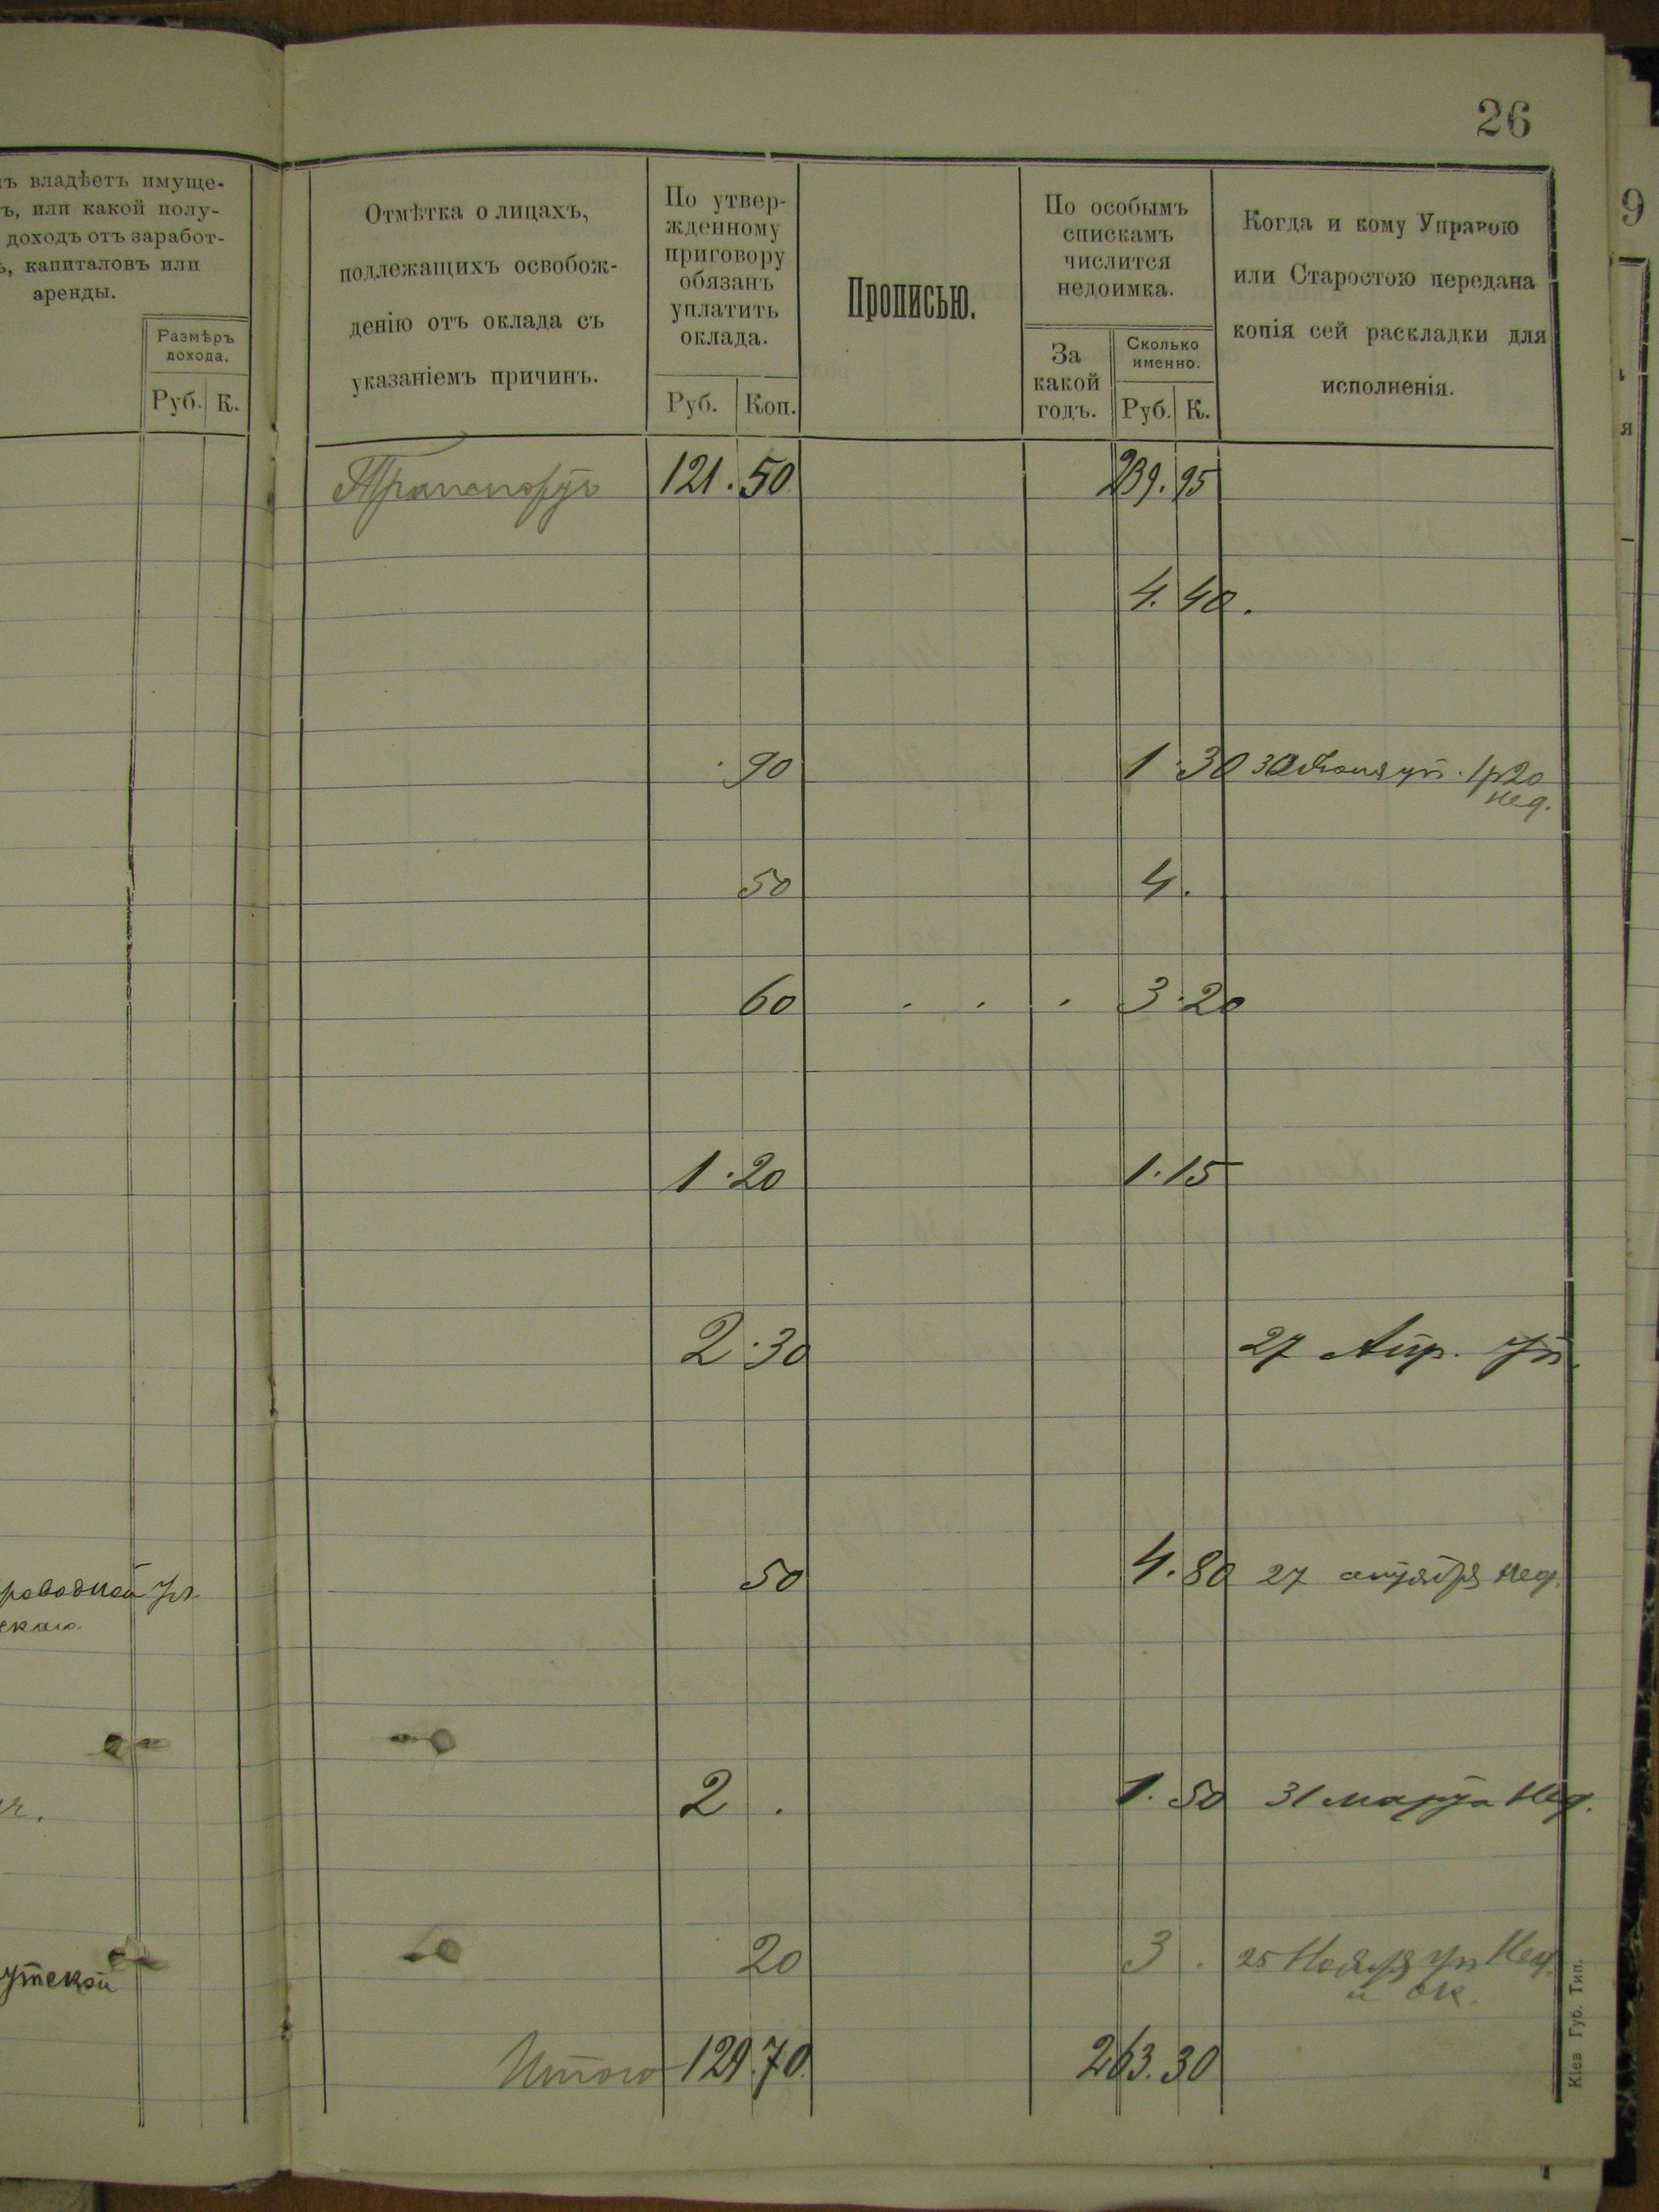 26
9
ъ владѣетъ имуще-
ъ, или какой полу-
доходъ отъ заработ-
ъ, капиталовъ или
аренды.
Размѣръ
дохода.
Руб. К.
Отмѣтка о лицахъ,
подлежащихъ освобож-
денію отъ оклада съ
указаніемъ причинъ.
По утвер-
жденному
приговору
обязанъ
уплатить
оклада.
Руб. Коп.
Прописью.
По особымъ
спискамъ
числится
недоимка.
За
какой
годъ.
Сколько
именно.
Руб. К.
Когда и кому Управою
или Старостою передана
копія сей раскладки для
исполненія.
я
Транспортъ 121.50 239.95
4.40.
90 1.30 30 уп. 1р20
нед.
50 4.
60 . . . 3.20
1.20 1.15
2.30 27 Апр. уп.
роводной ул. 50 4.80 27 нед.
2 . 1.50 31 марта нед.
20 3 . 25 Ноября уп нед.
и ок.
утской
Итого 129.70. 263.30
Кіев Губ. Тип.